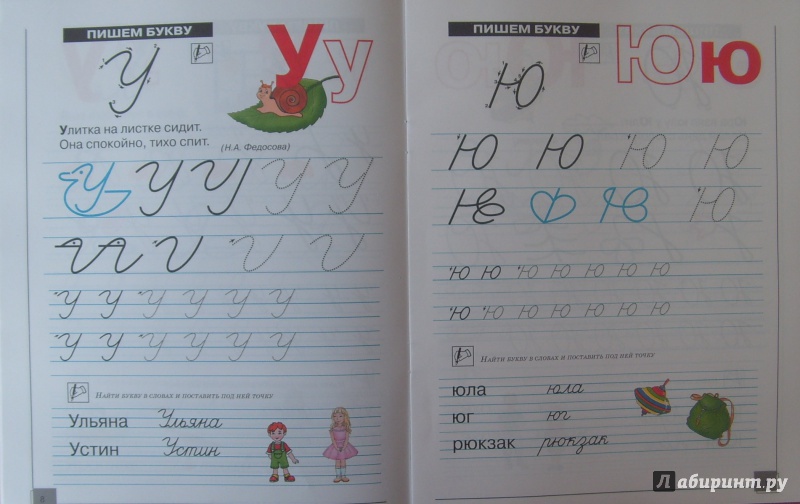 ПИШЕМ БУКВУ
У
Уу
Улитка на листке сидит.
Она спокойно, тихо спит.
(Н.А. Федосова)
У У У У У
У У У У У У
У У У У У У
Найти букву в словах и поставить под ней точку
Ульяна Ульяна
Устин Устин
8
ПИШЕМ БУКВУ
Ю
Юю
Ю Ю Ю Ю
Ю
Ю Ю Ю Ю Ю Ю Ю
Ю Ю Ю Ю Ю Ю Ю
Найти букву в словах и поставить под ней точку
юла юла
юг юг
рюкзак рюкзак
Лабиринт.ру